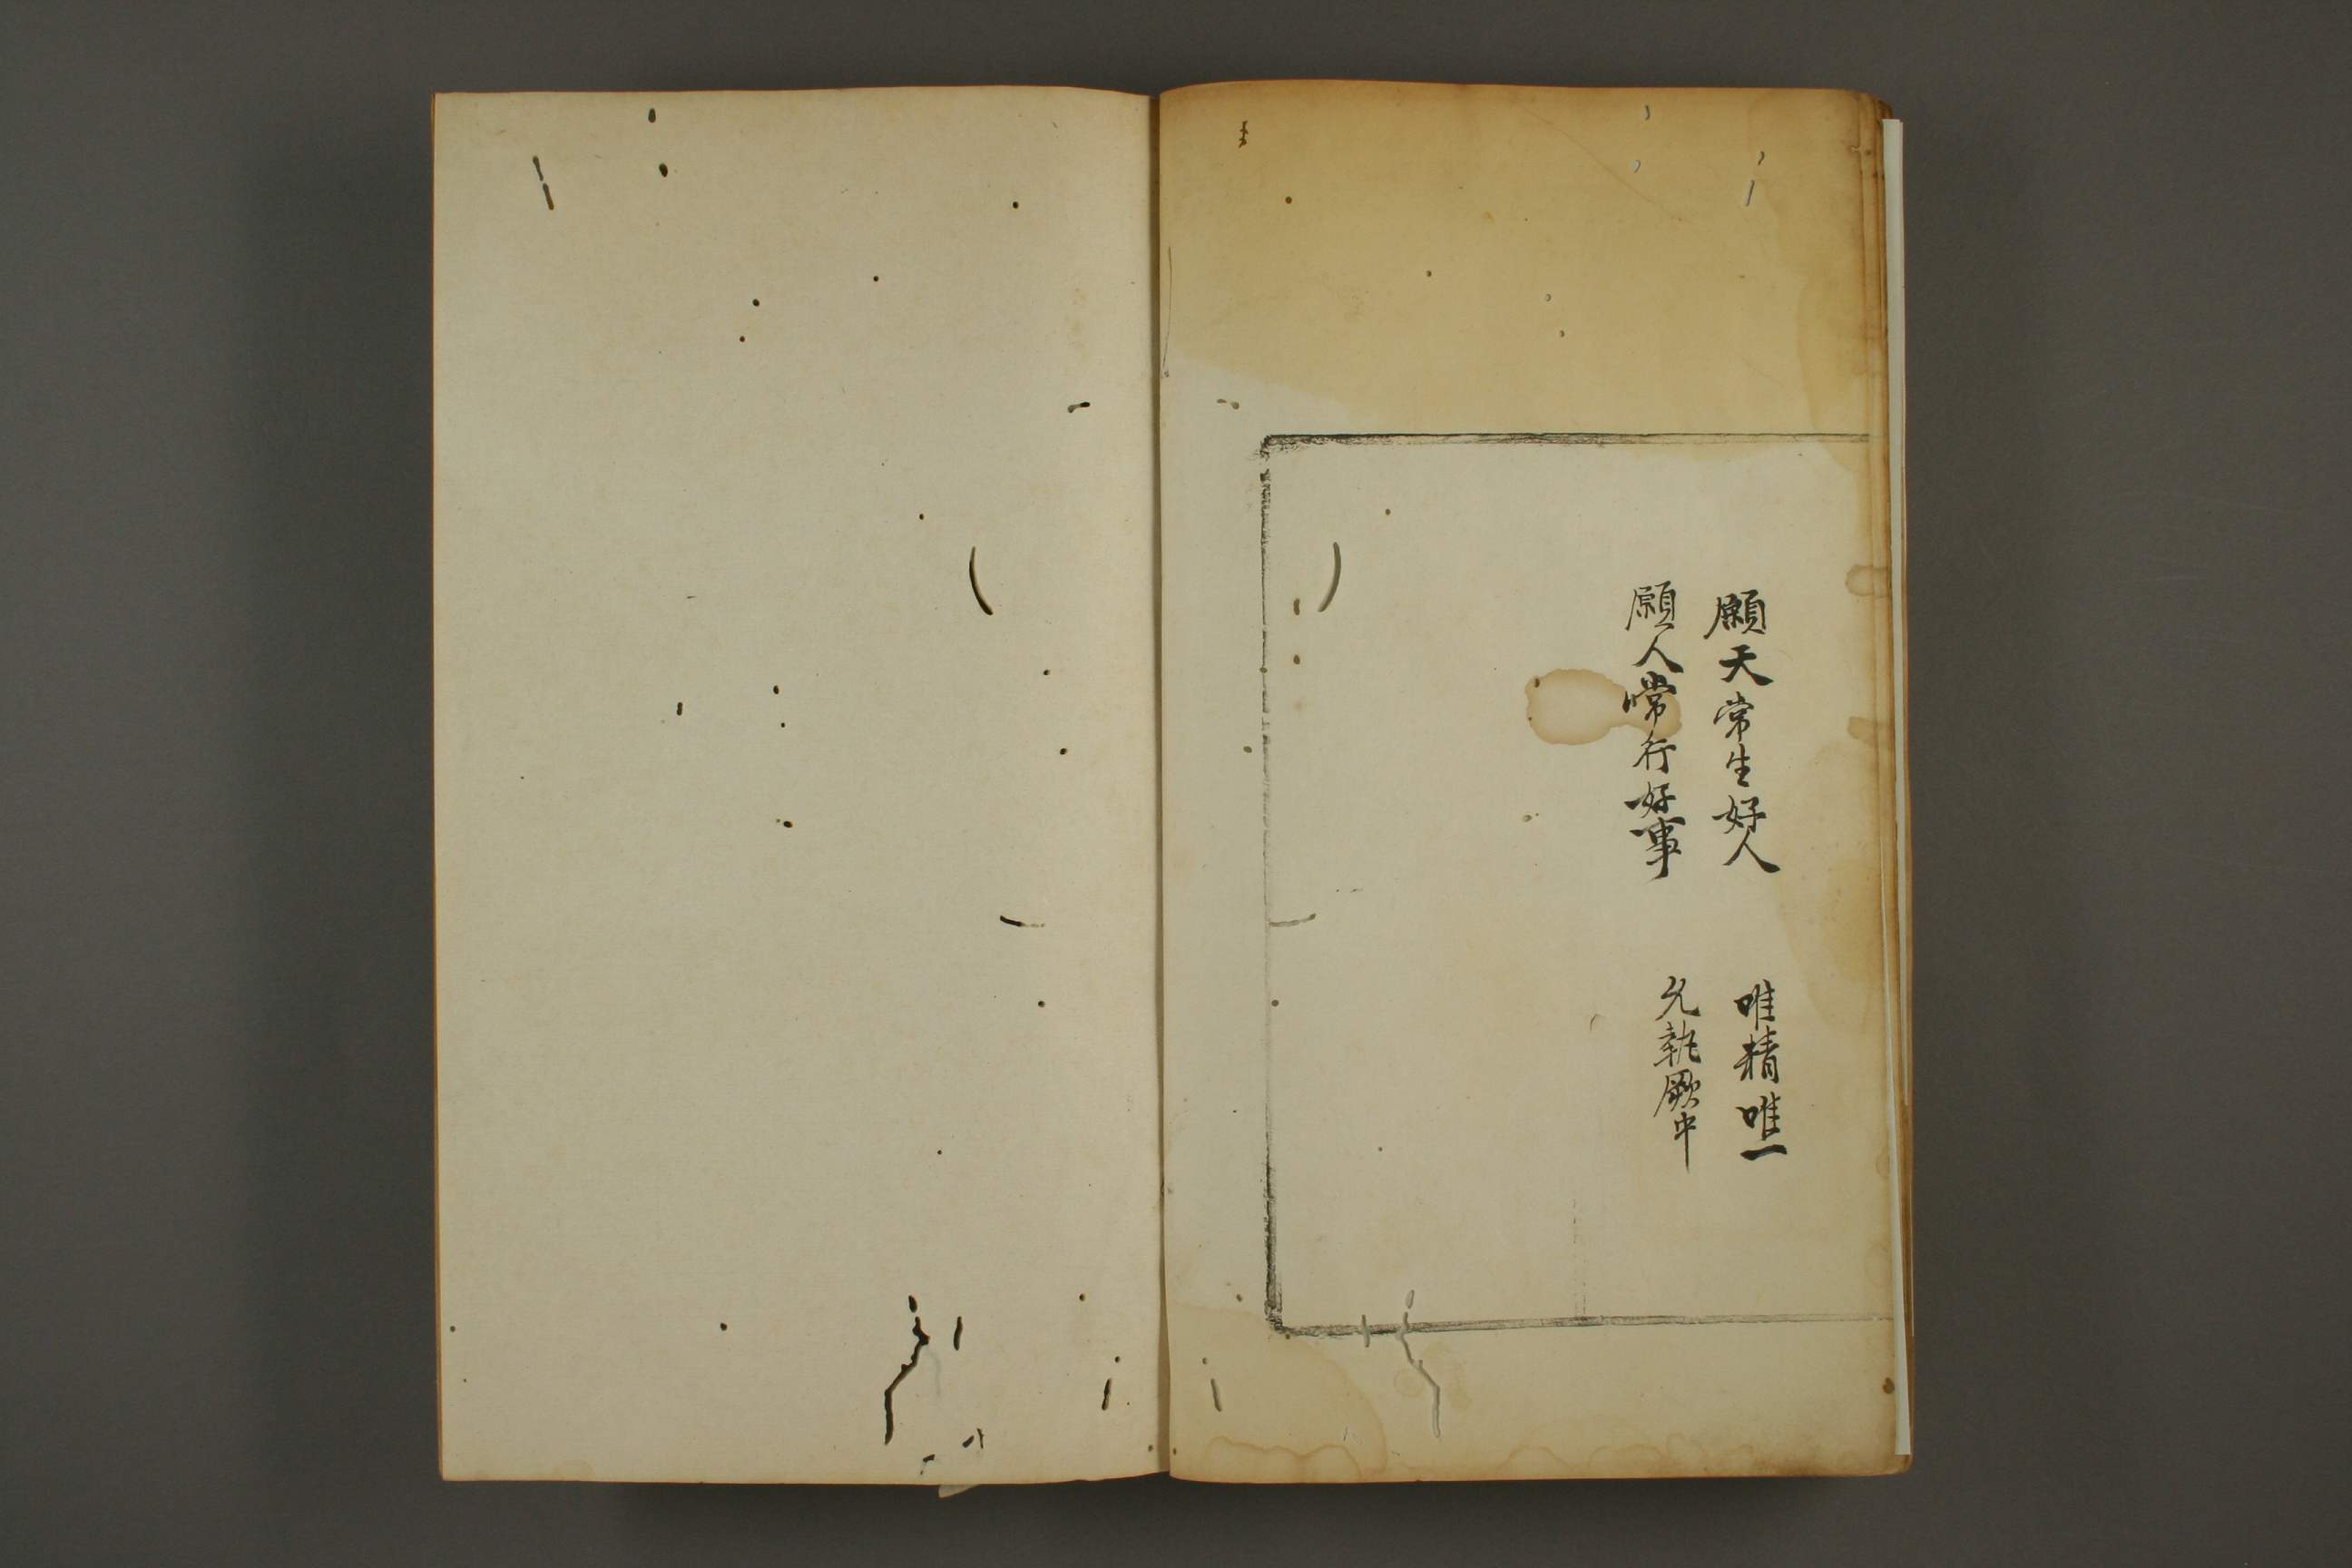 願天常生好人
願人嘗行好事
唯精唯一
允執厥中